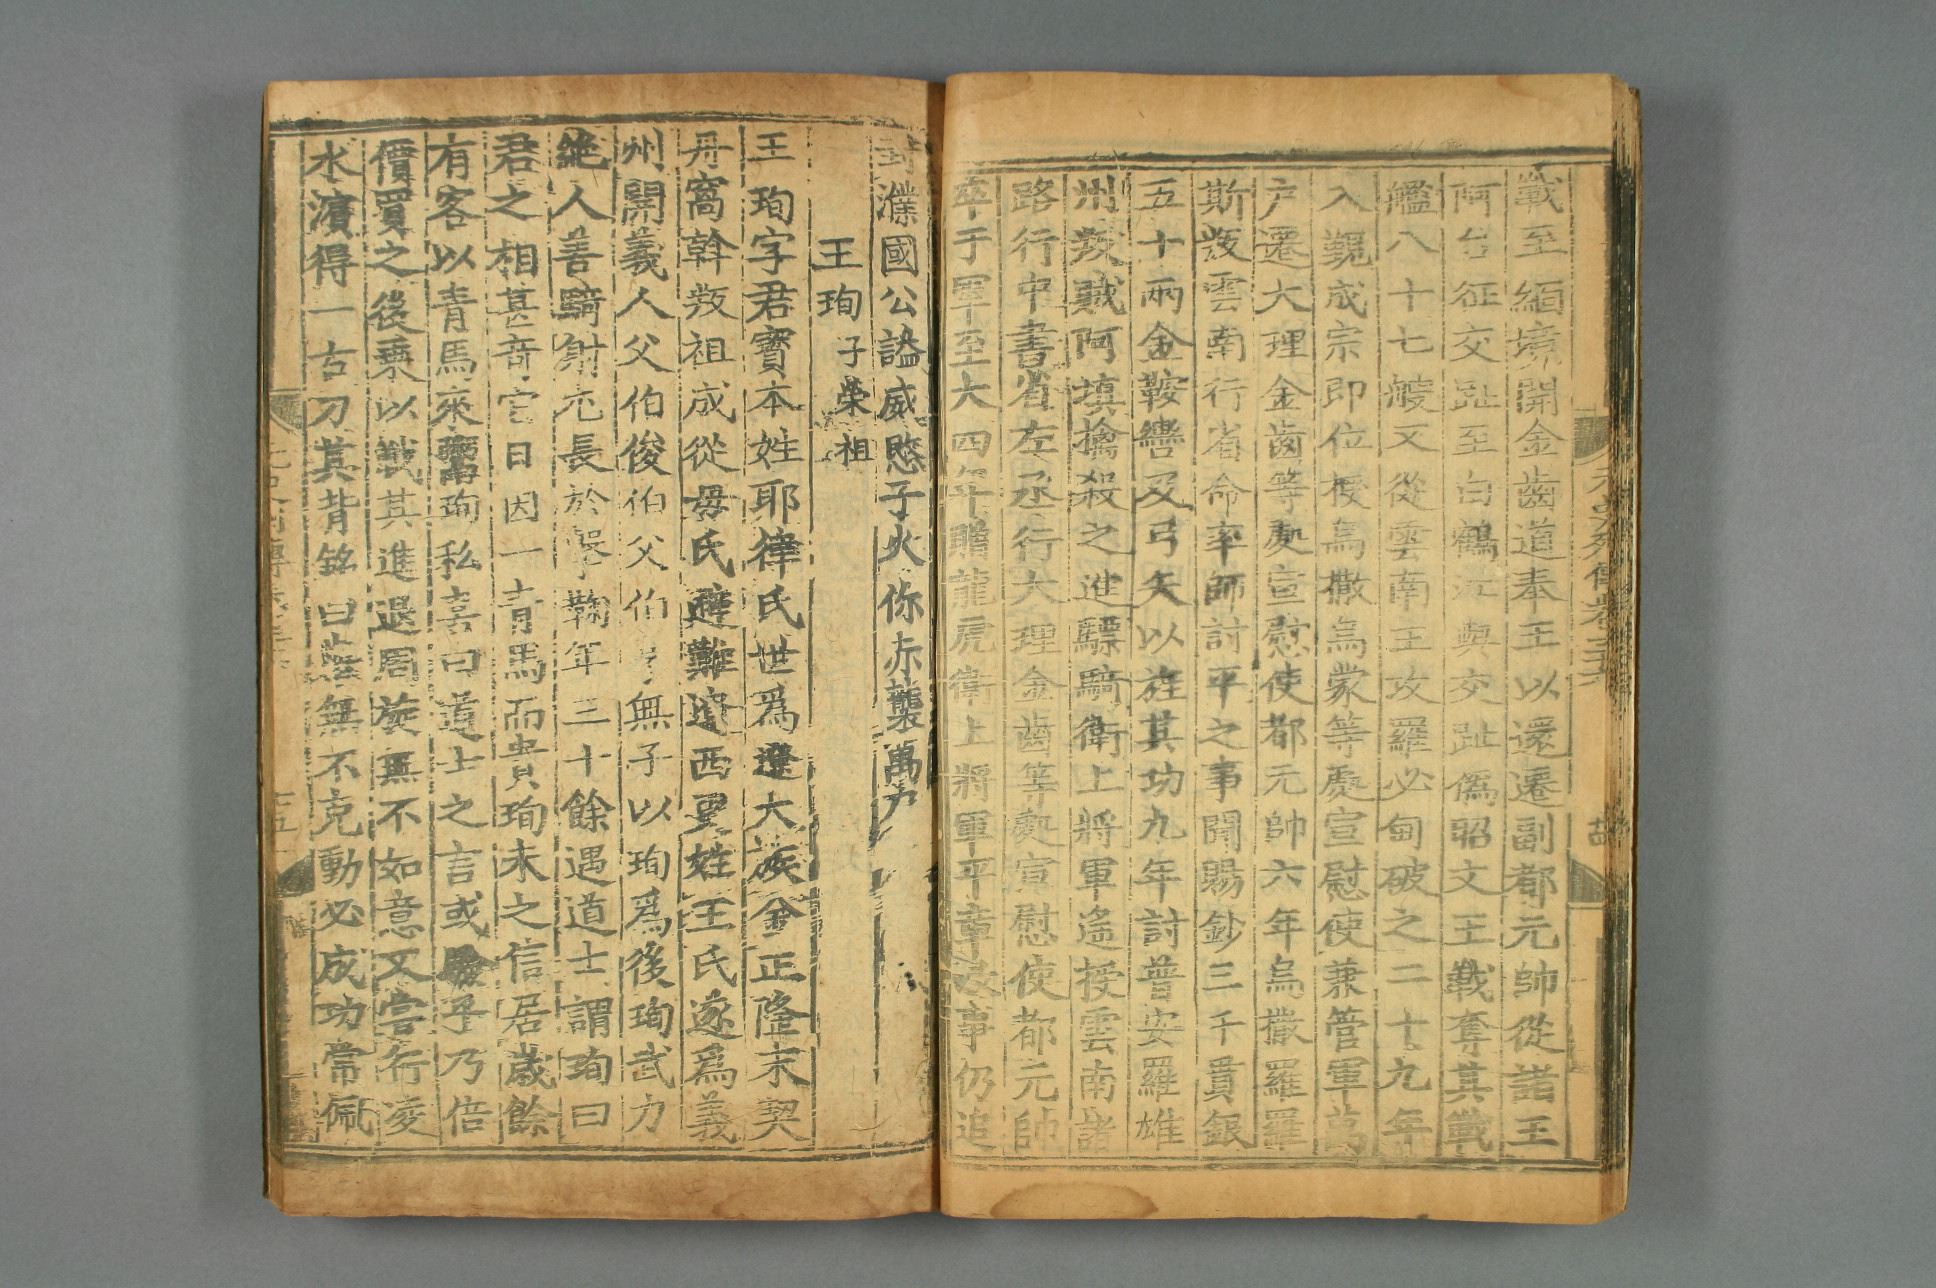 戰至緬境開金齒道奉王以還遷副都元帥從諸王
阿台征交趾至白鶴江與交趾僞昭文王戰奪其戰
艦八十七艘又從雲南王攻羅必甸破之二十九年
入覲成宗即位授烏撒烏蒙等處宣慰使兼管軍萬
户遷大理金齒等處宣慰使都元帥六年烏撒羅羅
斯叛雲南行省命率師討平之事聞賜鈔三千貫銀
五十兩金鞍轡及弓矢以旌其功九年討普安羅雄
州叛賊阿填擒殺之進驃騎衛上將軍遙授雲南諸
路行中書省左丞行大理金齒等處宣慰使都元帥
卒于軍至大四年贈龍虎衛上將軍平章政事仍追
封濮國公謚威愍子火你赤襲萬户
王珣 子榮祖
王珣字君寶本姓耶律氏世爲遼大族金正隆末契
丹窩斡叛祖成從毋氏避難遼西更姓王氏遂爲義
州開義人父伯俊伯父伯亨無子以珣爲後珣武力
絶人善騎射尤長於擊鞠年三十餘遇道士謂珣曰
君之相甚奇它日因一青馬而貴珣未之信居歲餘
有客以青馬來鬻珣私喜曰道士之言或驗乎乃倍
價買之後乘以戰其進退周旋無不如意又嘗行凌
水濱得一古刀其背銘曰舉無不克動必成功常佩
元史列傳卷三十六
十五